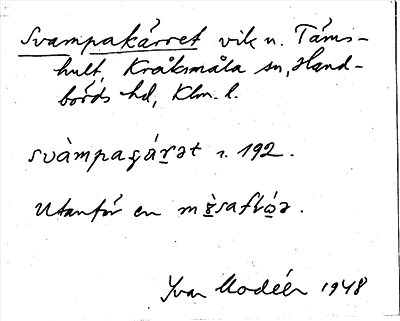 Svampakärret vik n. Täms-
hult, Kråksmåla sn, Hand-
börds hd, Klm. l.
svàmpagár̲ət r. 192.
Utanför en
Yvar Modéer 1948